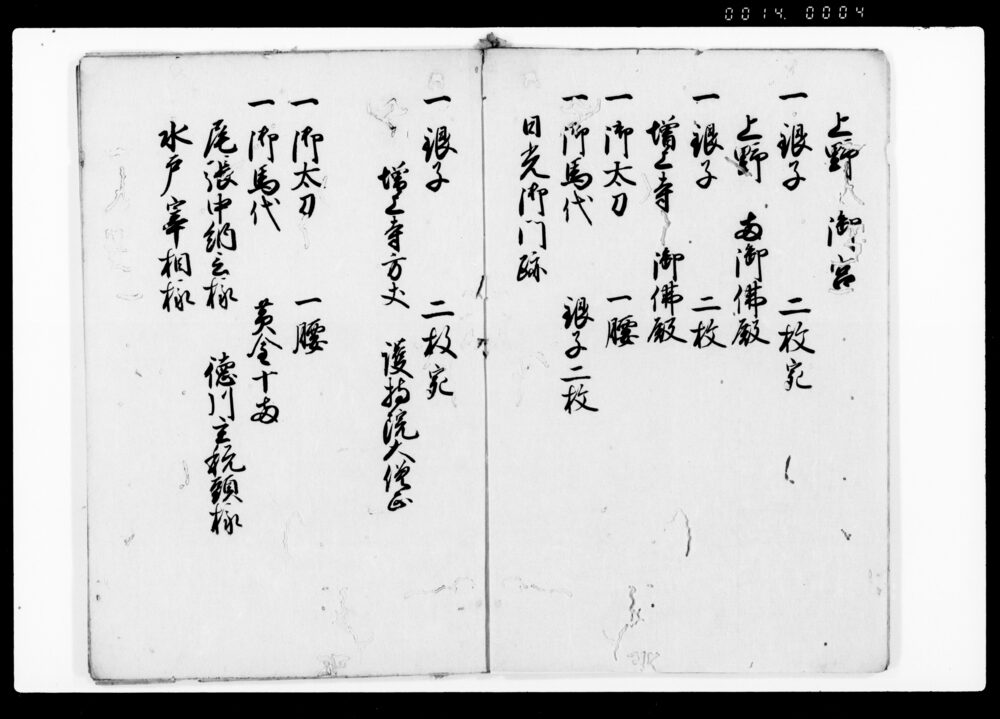 0014. 0004
上野 御宮
一 銀子 二枚宛
上野 両御佛殿
一 銀子 二枚
増上寺 御佛殿
一 御太刀 一腰
一 御馬代 銀子二枚
日光御門跡
一 銀子 二枚宛
増上寺方丈 護持院大僧正
一 御太刀 一腰
一 御馬代 黄金十両
尾張中納言様 徳川主税頭様
水戸宰相様